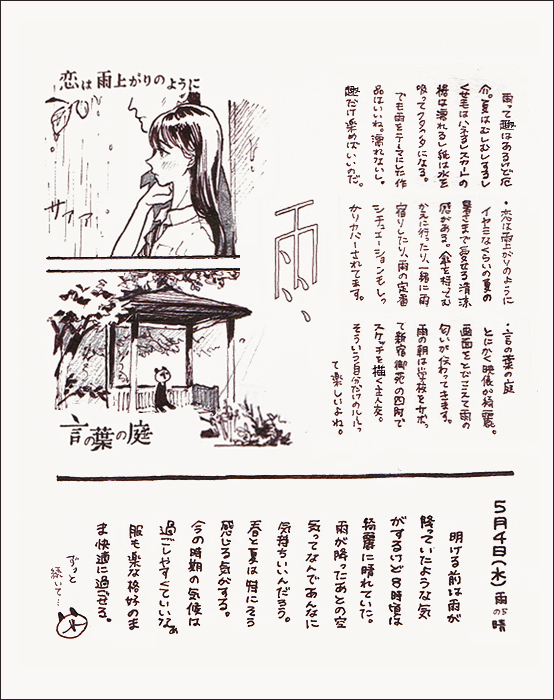 恋は雨上がりのように
サァァ
言の葉の庭
雨
雨って趣はあるけど厄
介。夏はむしむしするし
くせ毛はハネるしスカートの
裾は濡れるし紙は水を
吸ってクタクタになる。
でも雨をテーマにした作
品はいいね。濡れないし。
趣だけ楽めばいいのだ。
・恋は雨上がりのように
イヤミなくらいの夏の
暑さまで愛せる清涼
感がある。傘を持ってむ
かえに行ったり、一緒に雨
宿りしたり、雨の定番
シチュエーションもしっ
かりカバーされてます。
・言の葉の庭
とにかく映像が綺麗。
画面をとびこえて雨の
匂いが伝わってきます。
雨の朝は学校をサボっ
て新宿御苑の四阿で
スケッチを描く主人公。
そういう自分だけのルールっ
て楽しいよね。
5月4日(木)雨のち晴
明ける前は雨が
降っていたような気
がするけど8時頃は
綺麗に晴れていた。
雨が降ったあとの空
気ってなんであんなに
気持ちいいんだろう。
春と夏は特にそう
感じる気がする。
今の時期の気候は
過ごしやすくていいなぁ
服も楽な格好のま
ま快適に過ごせる。
ずっと
続いて…